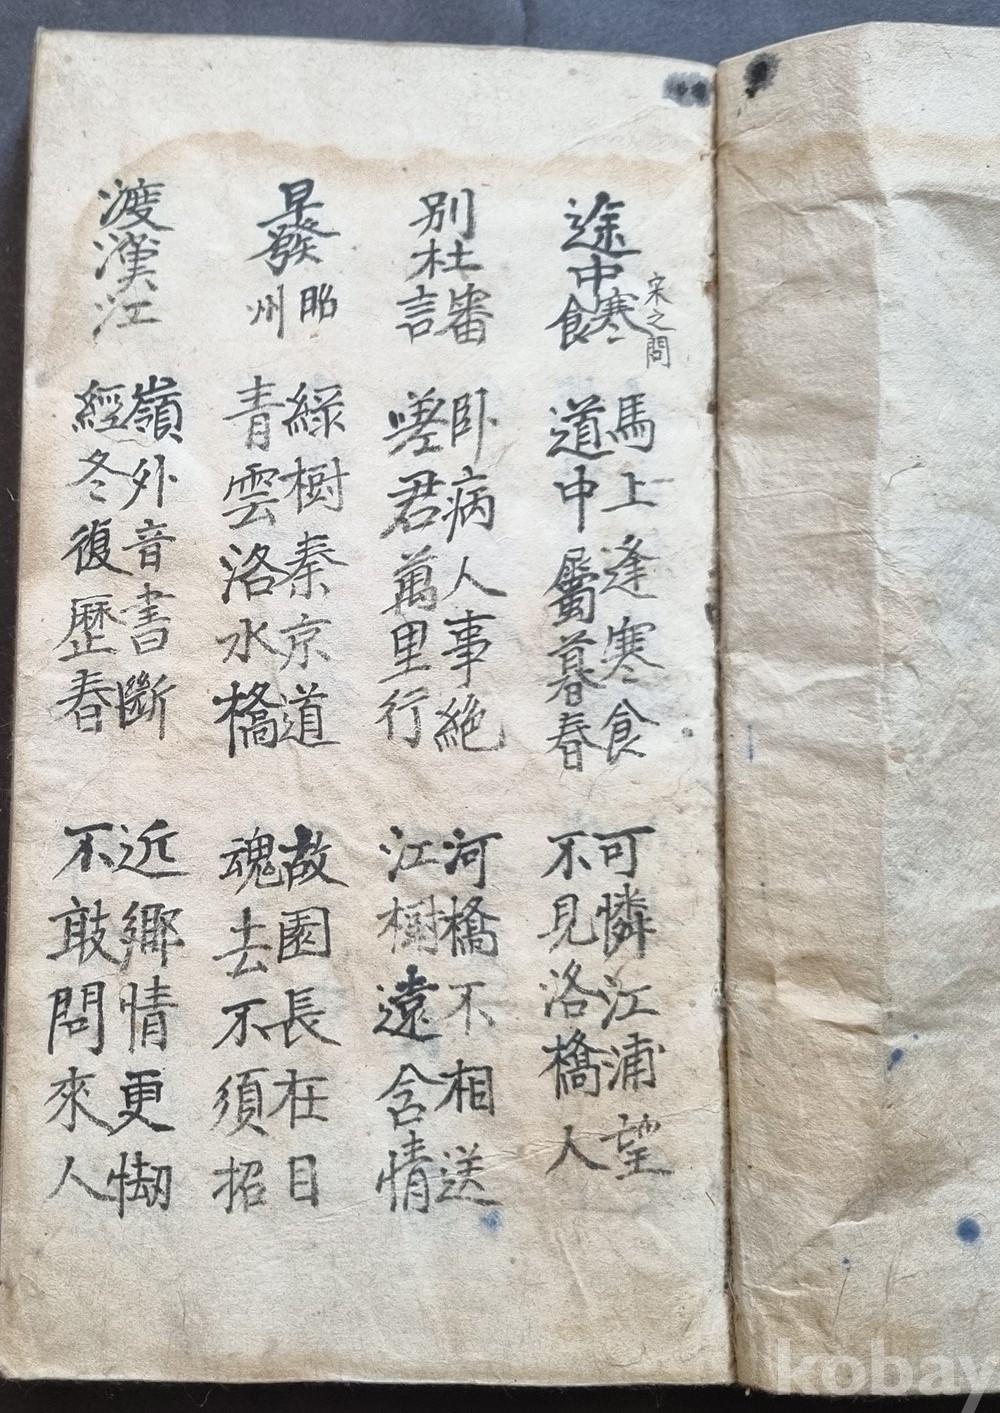 途中寒食
宋之問
馬上逢寒食
道中屬暮春
可憐江浦望
不見洛橋人
別杜審言
卧病人事絶
嗟君萬里行
河橋不相送
江樹遠含情
早發韶州
綠樹秦京道
青雲洛水橋
故園長在目
魂去不須招
渡漢江
嶺外音書斷
經冬復歷春
近鄉情更怯
不敢問來人
kobay